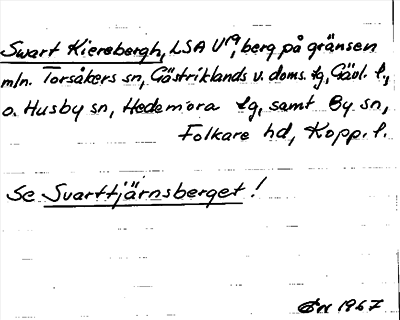 Swart Kiersbergh, LSA U19, berg på gränsen
mln. Torsåkers sn, Gästriklands v. doms. tg, Gävl. l.,
o. Husby sn, Hedemora tg, samt By sn,
Folkare hd, Kopp. l.
Se Svarttjärnsberget!
1967